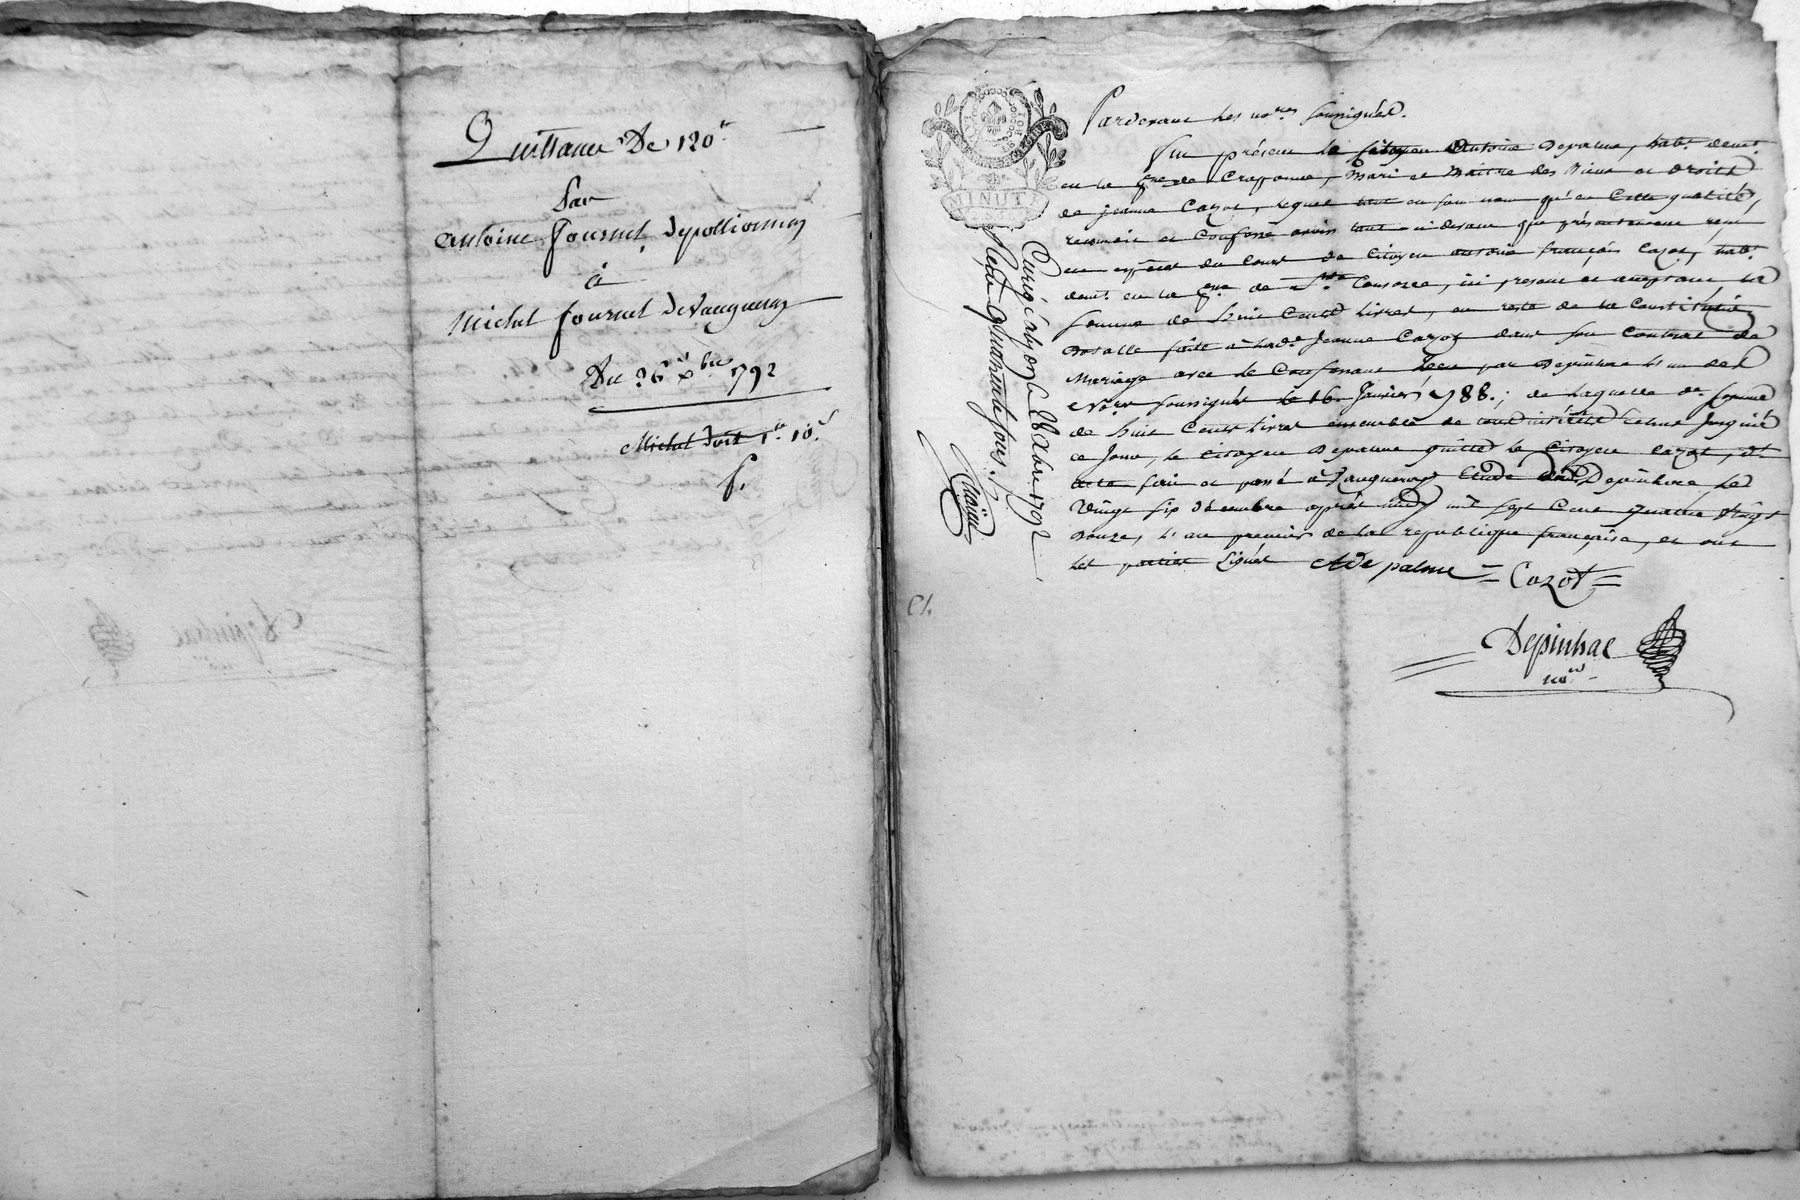 Quittance De 120 ᵗᵗ
Par
Antoine Fournel
à
Michel fournel de Vaugneray
Du 26 xbre 1792
Michel doit 1 ᵗᵗ 10 ˢ
Pardevant les no.res soussignés.
fut présent le citoyen Antoine Depalme, hab.t dem.t
en la p.sse de Craponne, Mari et Maitre des Biens et droits
de jeanne Cazot, lequel tant en son nom qu'en cette qualité,
reconnoit et Confesse avoir tant ci devant que présentement reçu
en espèces du Cours du Citoyen antoine françois Cazot, hab.t
dem.t en la p.sse de S.te Consorce, ici présent et acceptant la
somme de huit Cents livres, en reste de la Constitution
Dotalle faite à lad.e Jeanne Cazot dans son Contrat de
Mariage avec le Confessant reçu par Depinhac l'un des
No.res soussignés le 16 Janvier 1788.; de laquelle d.e somme
de huit Cents livres ensemble de tout intérêts échus jusqu'à
ce Jour, le citoyen Depalme quitte le Citoyen Cazot, d.t
acte fait et passé à Vaugneray Etude dud. Depinhac le
Vingt six décembre après midy mil sept Cent quatre Vingt
Douze, l'an premier de la republique française, et ont
les parties signés ADe palme = Cazot =
Depinhac
no.re
MINUTE
Enrig.é à lyon le Xbre 1792
Reçu quarante sous.